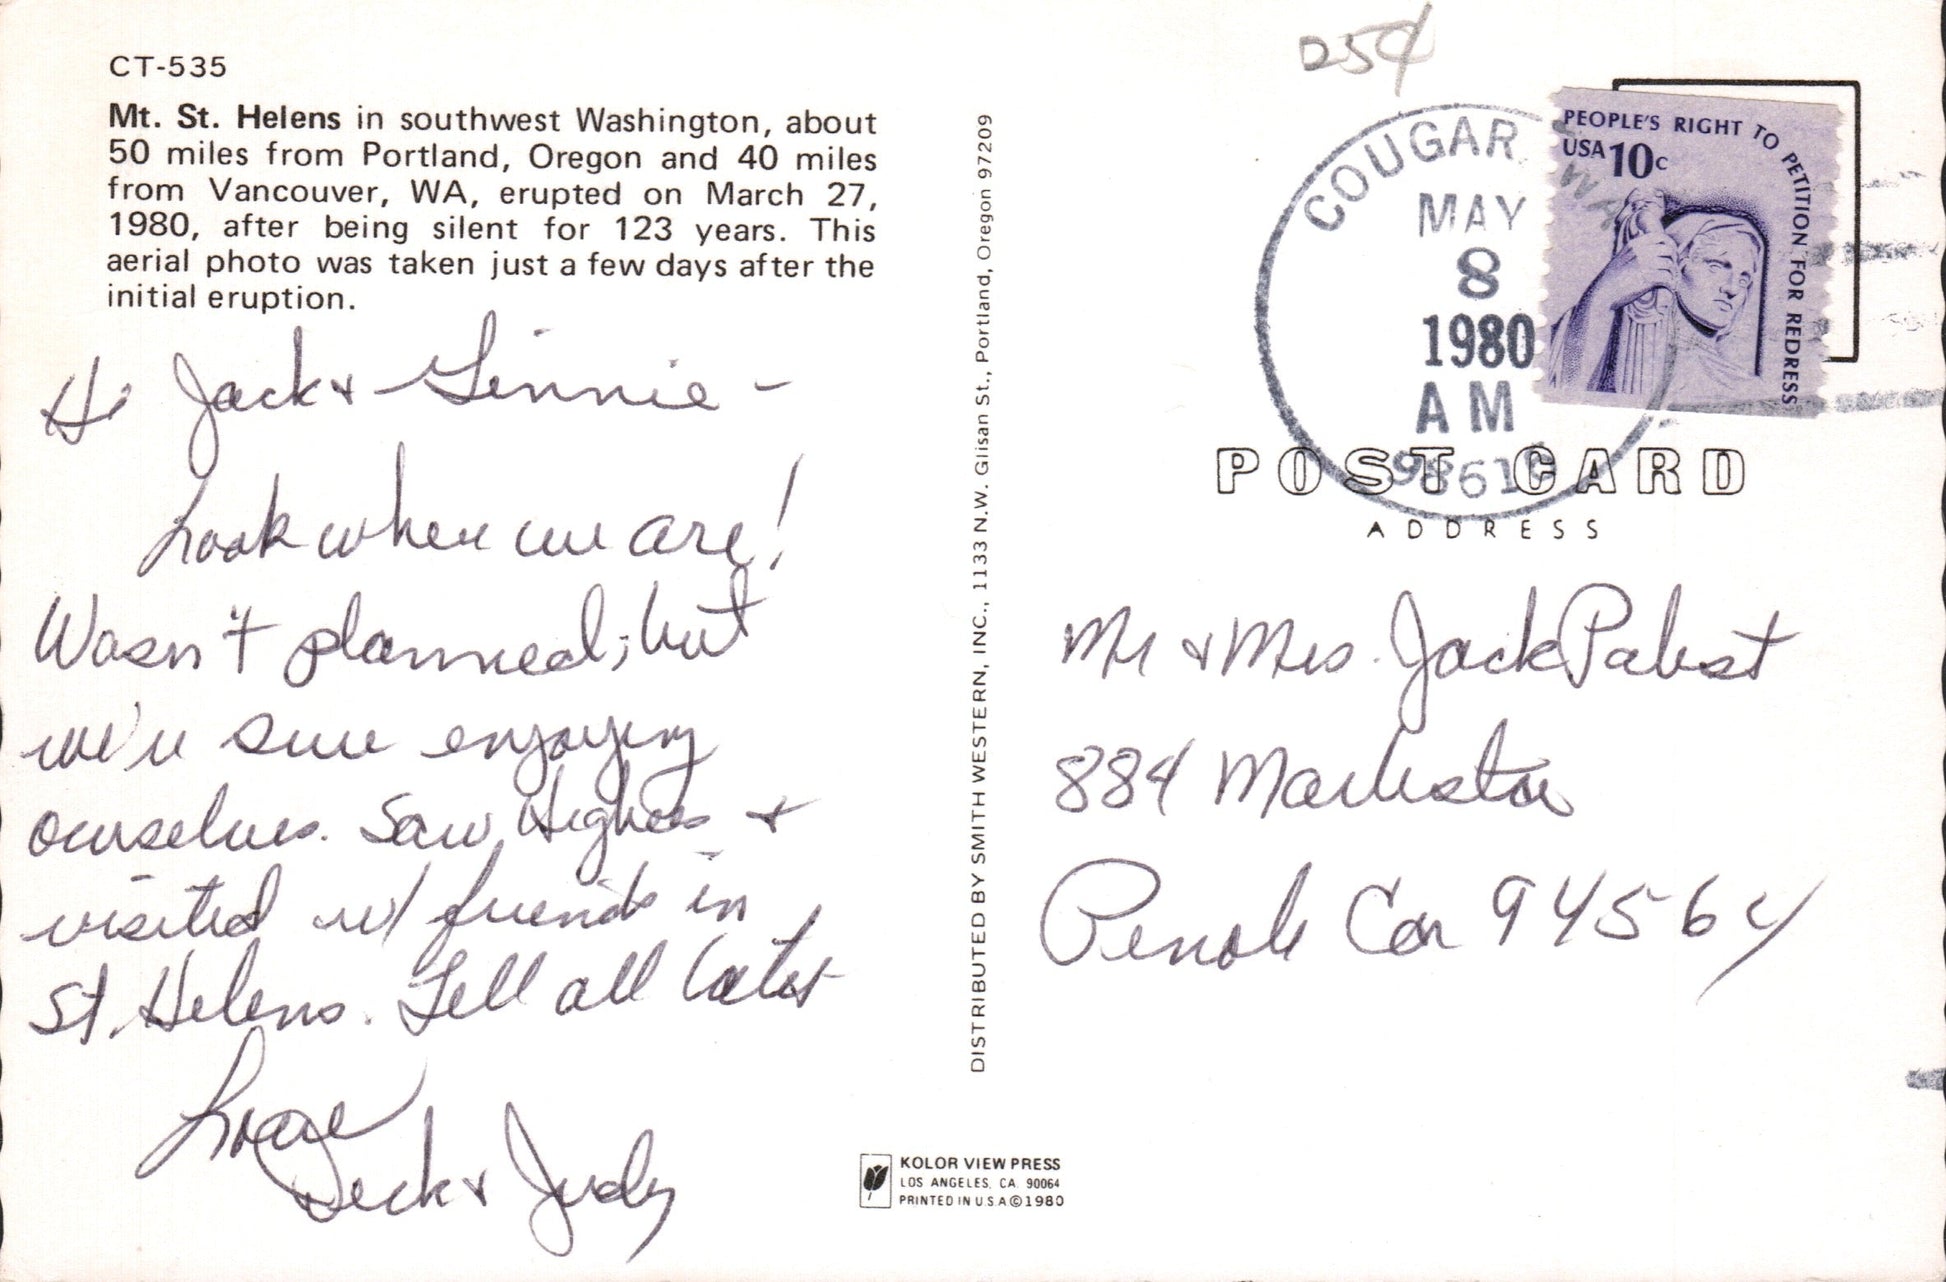 CT-535
Mt. St. Helens in southwest Washington, about
50 miles from Portland, Oregon and 40 miles
from Vancouver, WA, erupted on March 27,
1980, after being silent for 123 years. This
aerial photo was taken just a few days after the
initial eruption.
Hi Jack & Ginnie -
Look where we are!
Wasn't planned; but
we're sure enjoying
ourselves. Saw &
visited w/ friends in
St. Helens. Tell all later
Love
Dick & Judy
DISTRIBUTED BY SMITH WESTERN, INC., 1133 N.W. Glisan St., Portland, Oregon 97209
KOLOR VIEW PRESS
LOS ANGELES, CA. 90064
PRINTED IN U.S.A. © 1980
25¢
COUGAR WA
MAY
8
1980
AM
98616
PEOPLE'S RIGHT TO PETITION FOR REDRESS
USA 10c
POST CARD
ADDRESS
Mr & Mrs. Jack Pabst
884
Pinole Ca 94564